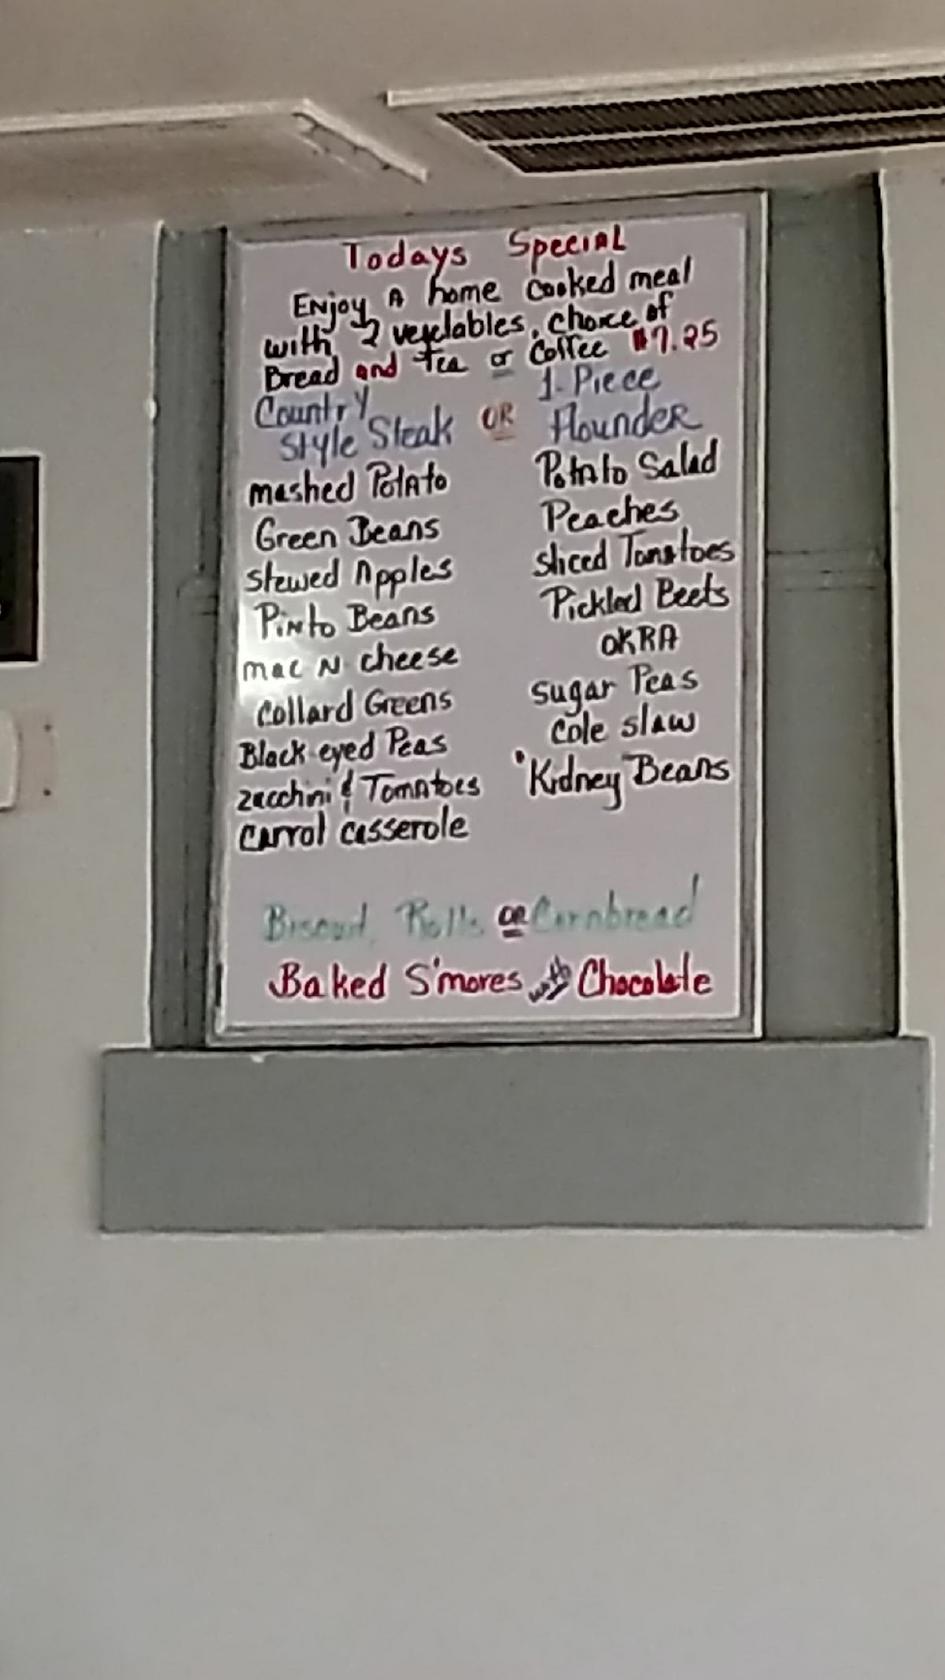 Todays Special
Enjoy A home cooked meal
with 2 vegetables, choice of
Bread and Tea or Coffee $7.25
Country
Style Steak OR
1-Piece
Flounder
mashed Potato
Green Beans
Stewed Apples
Pinto Beans
mac N cheese
Collard Greens
Black eyed Peas
zucchini & Tomatoes
Carrot casserole
Potato Salad
Peaches
Sliced Tomatoes
Pickled Beets
OKRA
Sugar Peas
Cole slaw
Kidney Beans
Biscuit, Rolls OR Cornbread
Baked S'mores with Chocolate